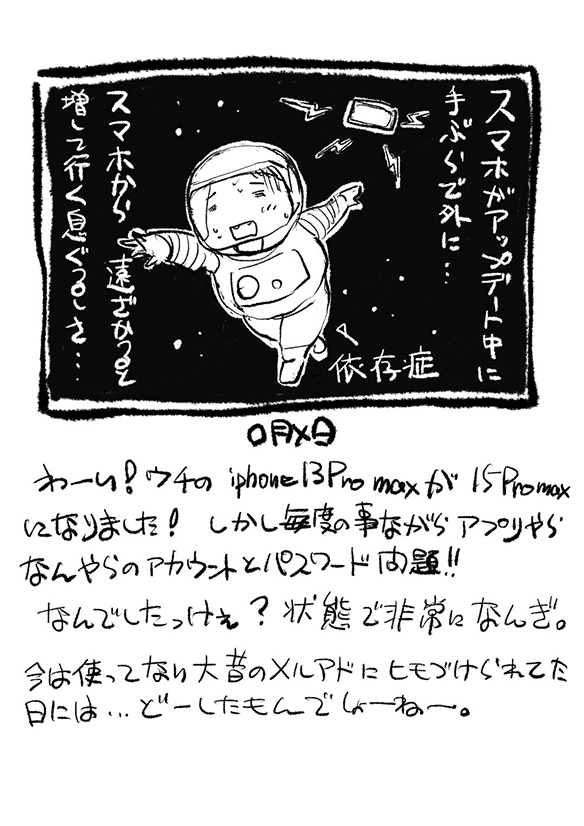 スマホがアップデート中に
手ぶらで外に…
スマホから遠ざかると
増して行く息ぐるしさ…
依存症
〇月×日
わーい！ウチのiphone13Pro maxが15Pro max
になりました！しかし毎度の事ながらアプリやら
なんやらのアカウントとパスワード問題!!
なんでしたっけぇ？状態で非常になんぎ。
今は使ってない大昔のメルアドにヒモづけられてた
日には…どーしたもんでしょーねー。